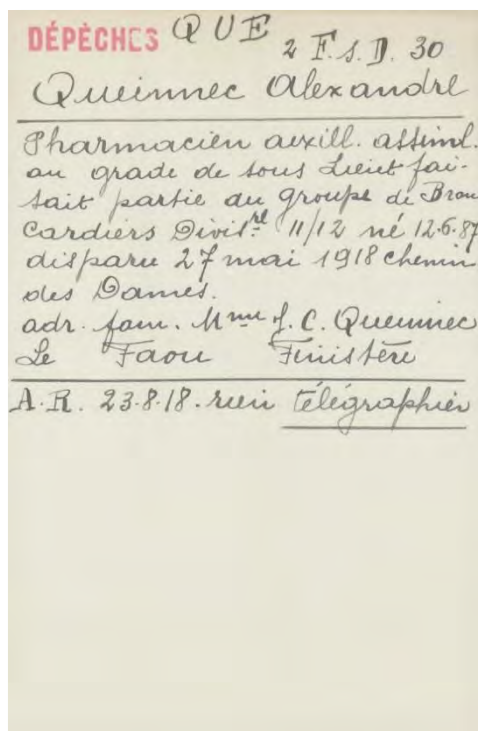 DÉPÈCHES QUE 2 F.S.D. 30
Queinnec Alexandre
Pharmacien auxill. assiml.
au grade de sous Lieut fai-
sait partie du groupe de Bran
cardiers Divis.re 11/12 né 12.6.87
disparu 27 mai 1918 chemin
des Dames.
adr. fam. Mme J. C. Queinnec
Le Faou Finistère
A.R. 23.8.18. rien télégraphier